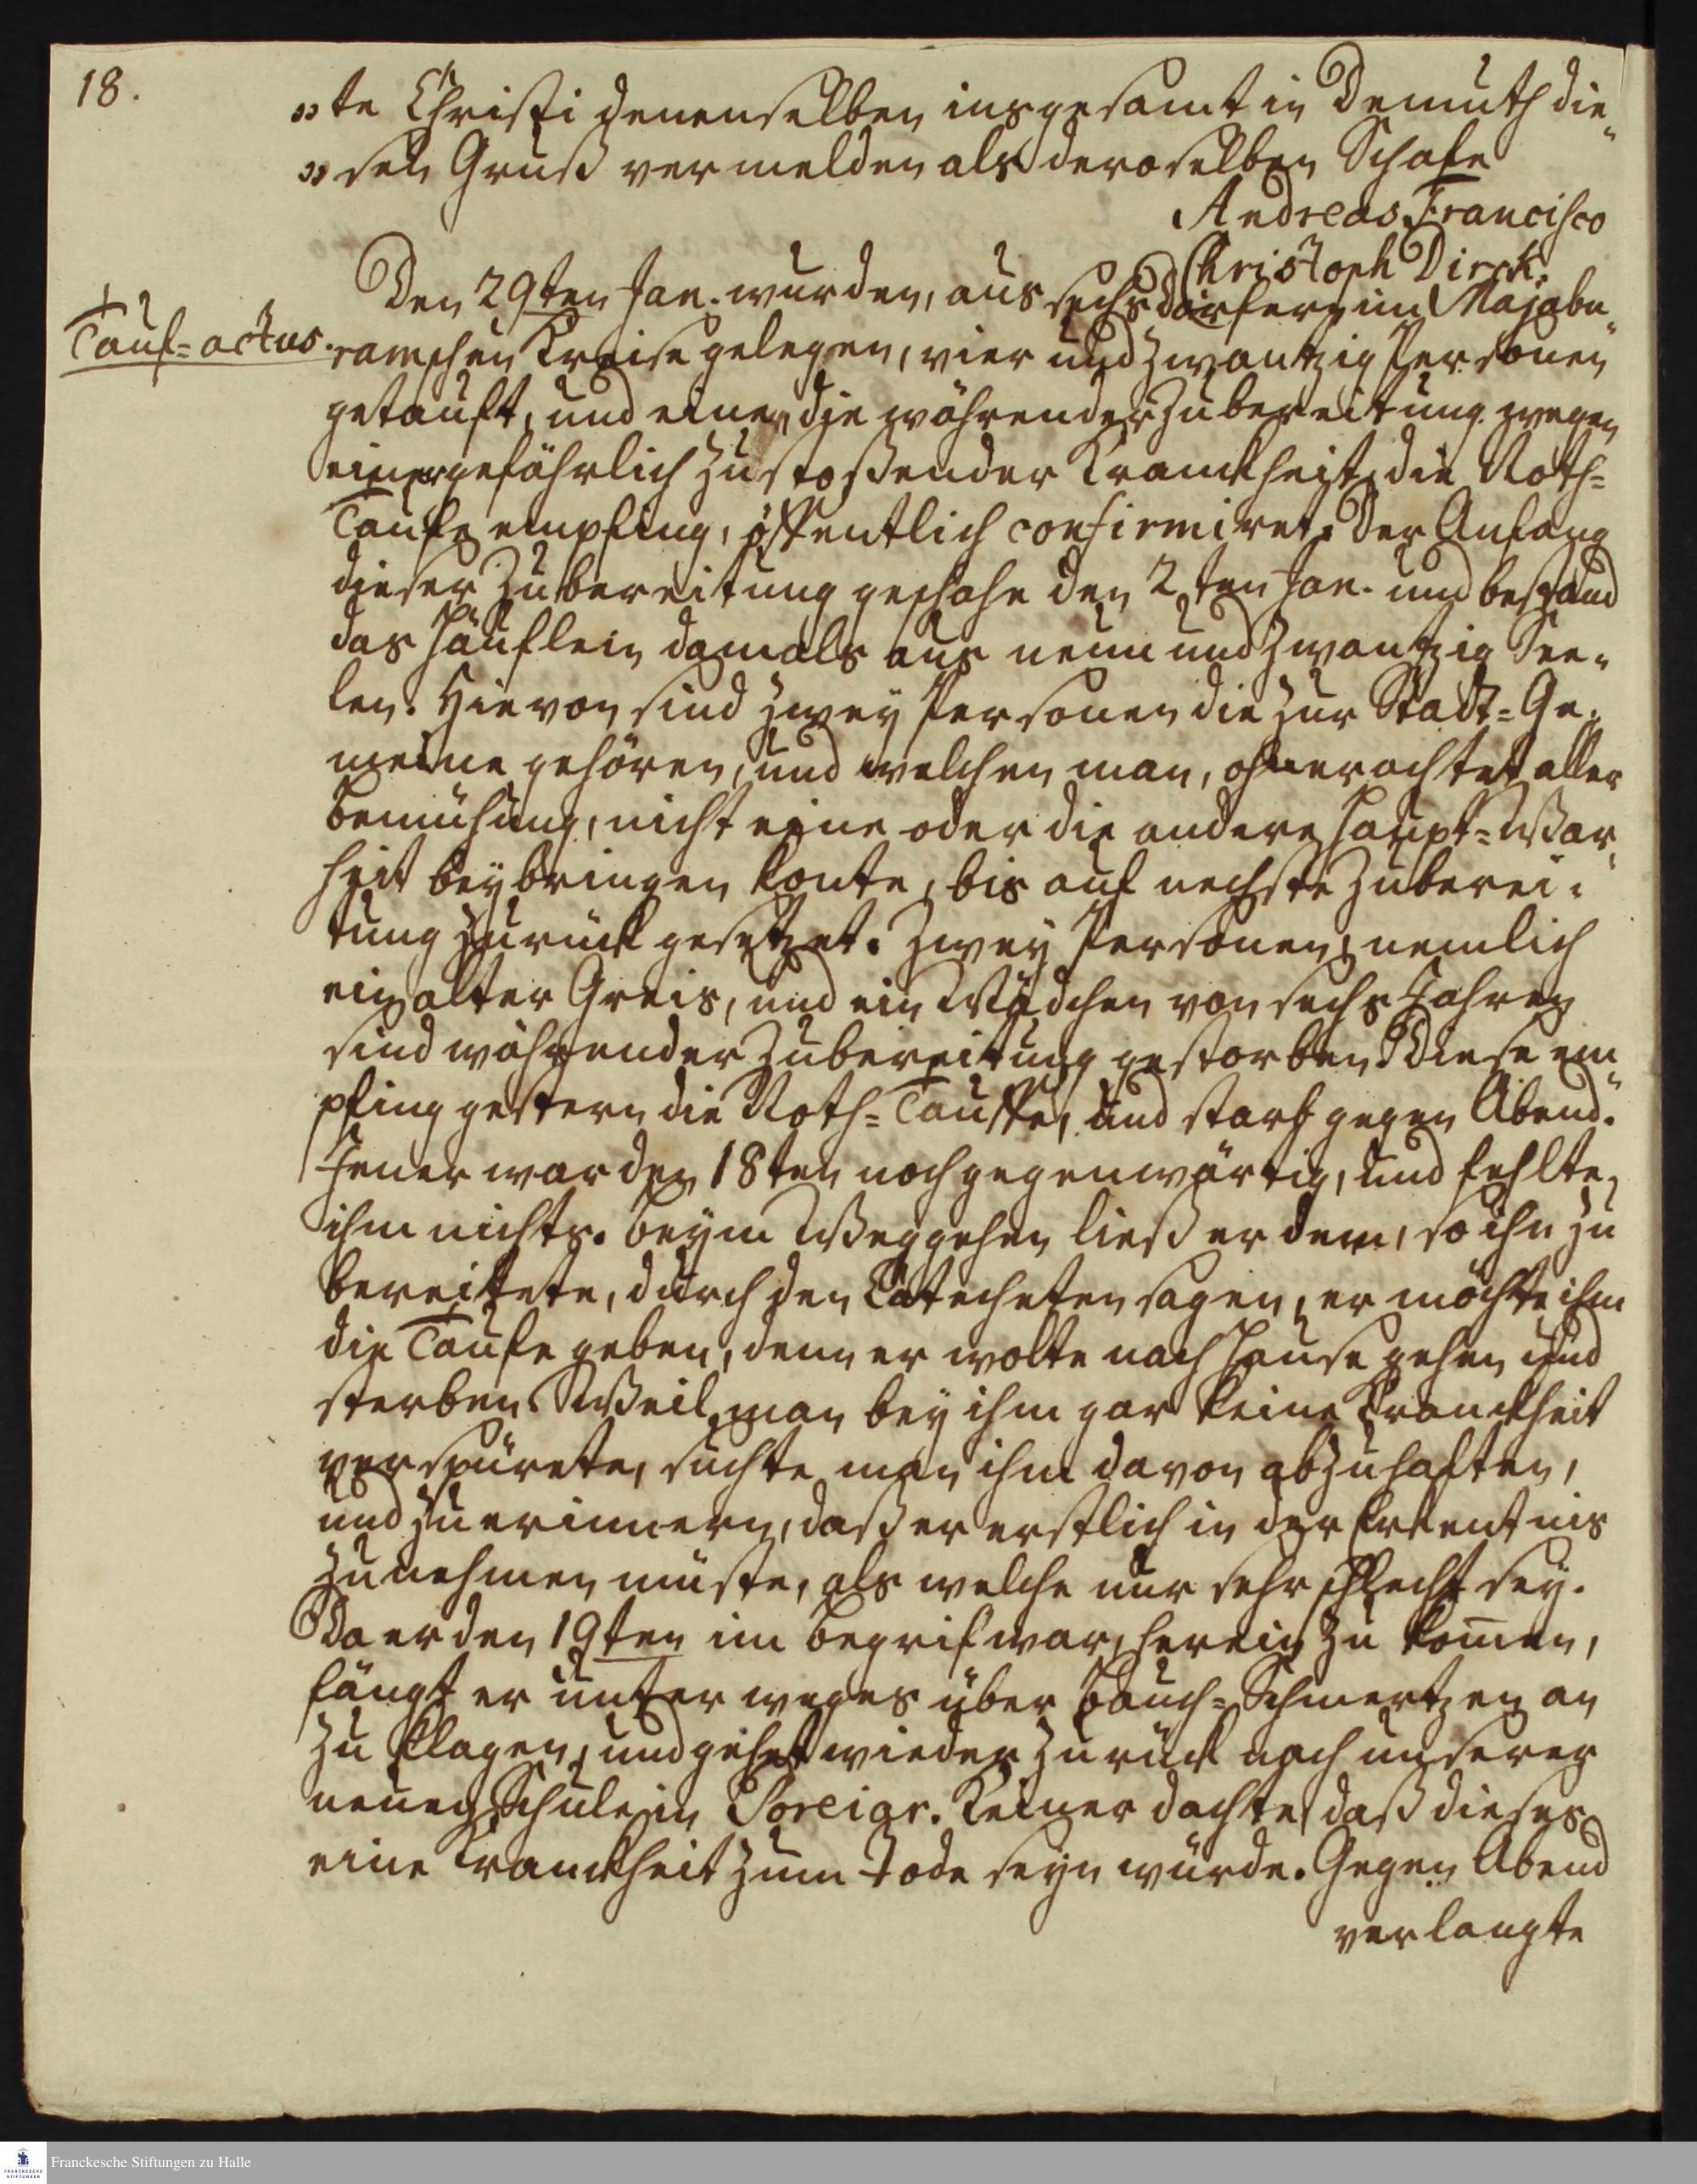 18.
„te Christi denenselben insgesamt in Demuth die„
„sen Gruß vermelden als deroselben Schafe
Andreas Francisco
Christoph Dirck.
Tauf=actus.
Den 29ten Jan. wurden, aus sechs dörfern im Majabu„
ramschen Kreise gelegen, vier und zwantzig Personen
getauft, und eine, die währender Zubereitung wegen
einer gefährlich zustoßender Kranckheit die Noth=
Taufe empfing, öffentlich confirmiret. Der Anfang
dieser Zubereitung geschahe den 2ten Jan. und bestand
das Häuflein damals aus neun und zwantzig See„
len. Hievon sind zwey Personen die zur Stadt=Ge„
meine gehören, und welchen man, ohnerachtet aller
bemühung, nicht eine oder die andere Haupt=War„
heit beybringen konte, bis auf nechste Zuberei„
tung zurück gesetzet. Zwey Personen, nemlich
ein alter Greis, und ein Mädchen von sechs Jahren
sind währender Zubereitung gestorben. Diese em„
pfing gestern die Noth=Tauffe, und starb gegen Abend.
Jener war den 18ten noch gegenwärtig, und fehlte
ihm nichts. beym Weggehen ließ er dem, so ihn zu
bereitete, durch den Catecheten sagen, er möchte ihm
die Taufe geben, denn er wolte nach Hause gehen und
sterben. Weil man bey ihm gar keine Kranckheit
verspürete, suchte man ihm davon abzuhalten,
und zu erinnern, daß er erstlich in der Erkentnis
zunehmen müste, als welche nur sehr schlecht sey.
Da er den 19ten im begrif war, herein zu kom̅en,
fängt er unter weges über Bauch=Schmertzen an
zu klagen, und gehet wieder zurück nach unserer
neuen Schule in Poreiar. Keiner dachte, daß dieses
eine Kranckheit zum Tode seyn würde. Gegen Abend
verlangte
Franckesche Stiftungen zu Halle
FRANCKESCHE
STIFTUNGEN